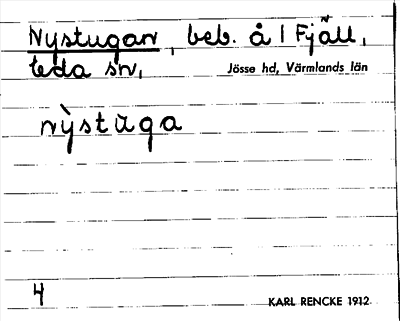 Nystugan, beb. å 1 Fjäll,
Eda sn,
Jösse hd, Värmlands län
nỳstūga
4
KARL RENCKE 1912